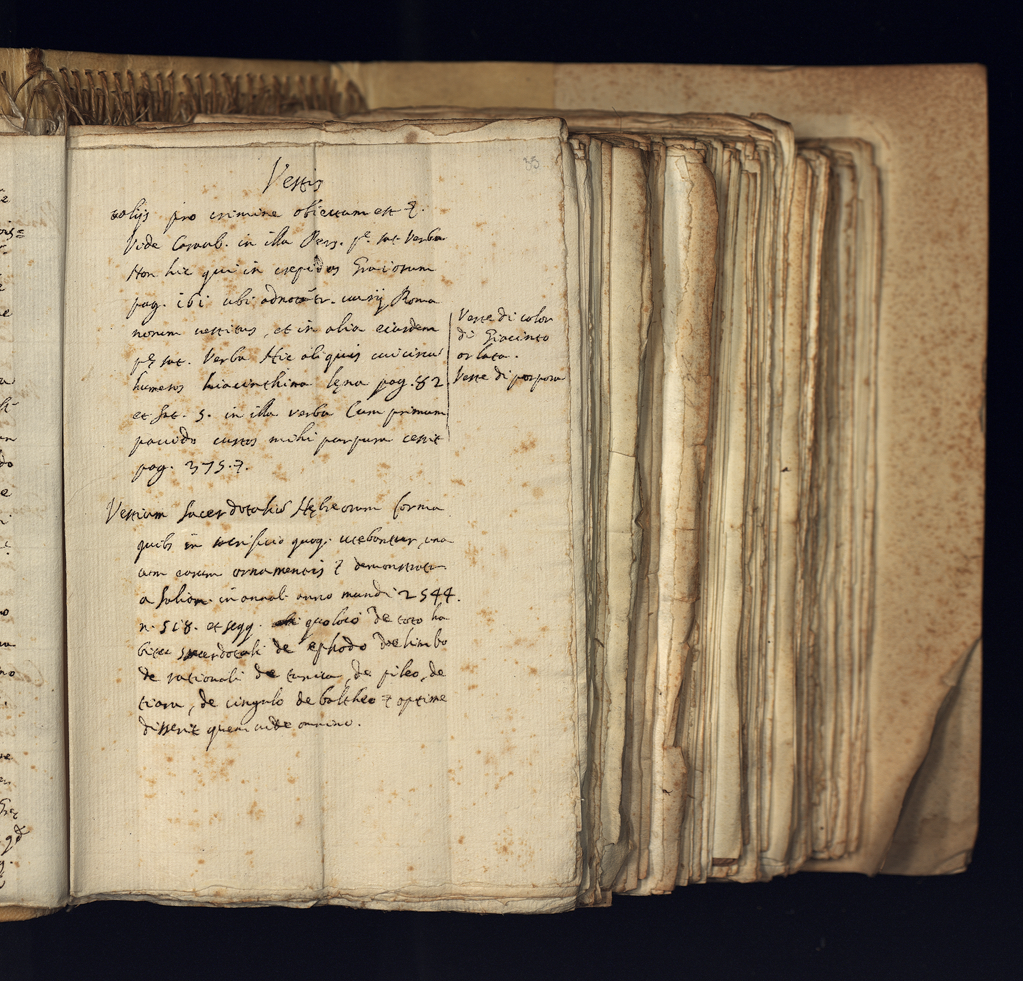 85
Vestis
pro crimine obiectum est &.
Vide Casaub. in illa Pers. pe. sat. Verba
Non hic qui in crepidas Graiorum
pag. 161 ubi Roma
norum vestitus, et in alia eiusdem
pe sat. Verba Hic aliquis cui circu
humeros hiacinthina lęna pag. 82.
et sat. 5. in illa verba Cum primum
pavido custos mihi purpura cessit
pag. 375. &.
Veste di color
di Giacinto
or lata.
Veste di porpora
Vestium sacerdotaliũ Hębreorum forma
quibs in sacrificio quoq. utebantur, una
cum earum ornamentis & demonstratur
a Salian. in annal. anno mundi 2544.
n. 518. et seqq. quo loco de toto ha
bitu sacerdotali de ephodo de limbo
de rationali de tunica, de pileo, de
tiara, de cingulo de baltheo & optime
disserit quem vide omnino.